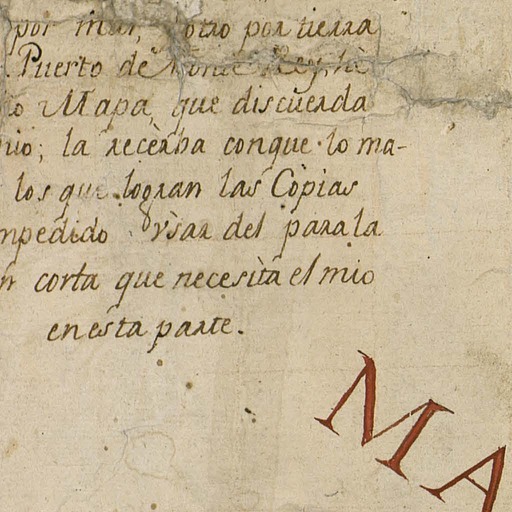 por mar, y otro por tierra
Puerto de Monte Rey, hè
o Mapa, que discuerda
nio; la recèrba conque lo ma-
los que logran las Còpias
mpedido vsar del para la
n corta que necesita el mio
en esta parte.
MA